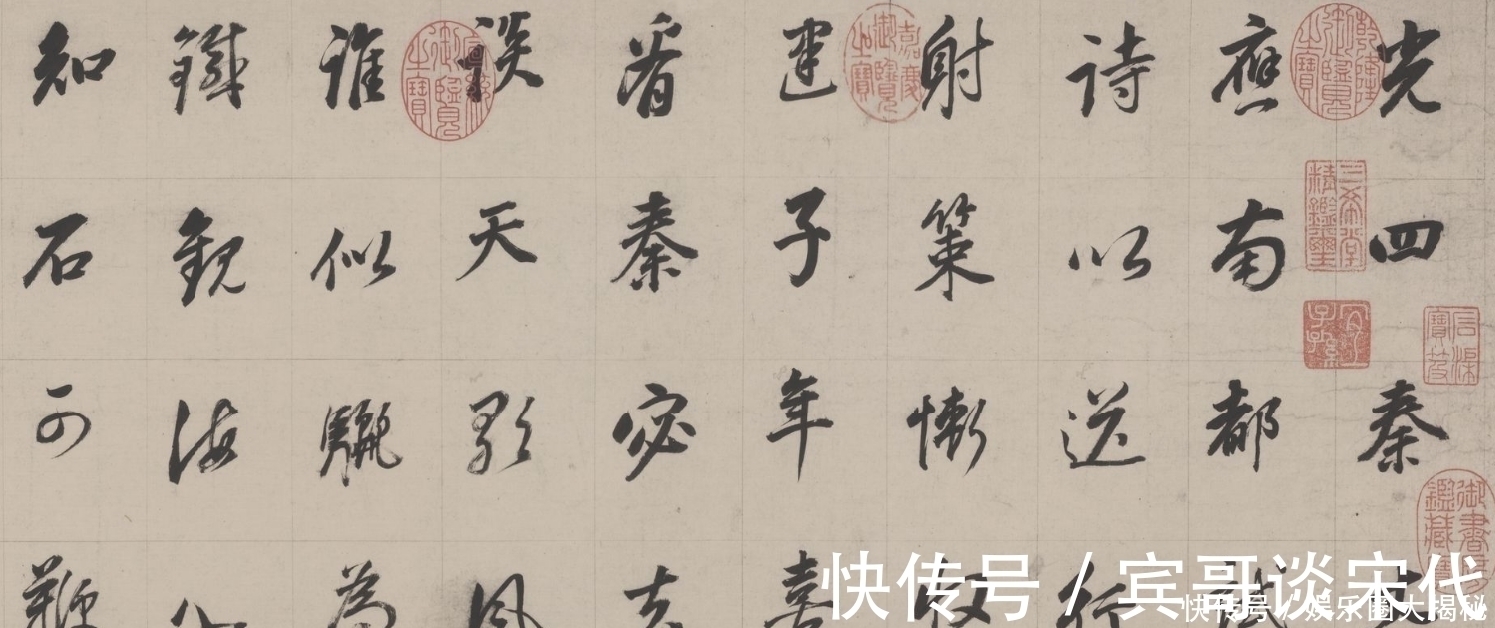 光四秦
應南都試
詩以送行
射策慚
建子年喜
看秦宓去
談天風
誰似驪為
鐵觀海八
知石可鞭
乾隆御覽之寶
嘉慶御覽之寶
御覽之寶
三希堂精鑑璽
宜子孫
石渠寶笈
御書鑑藏
快传号 / 宾哥谈宋代
快传号 / 娱乐圈大揭秘